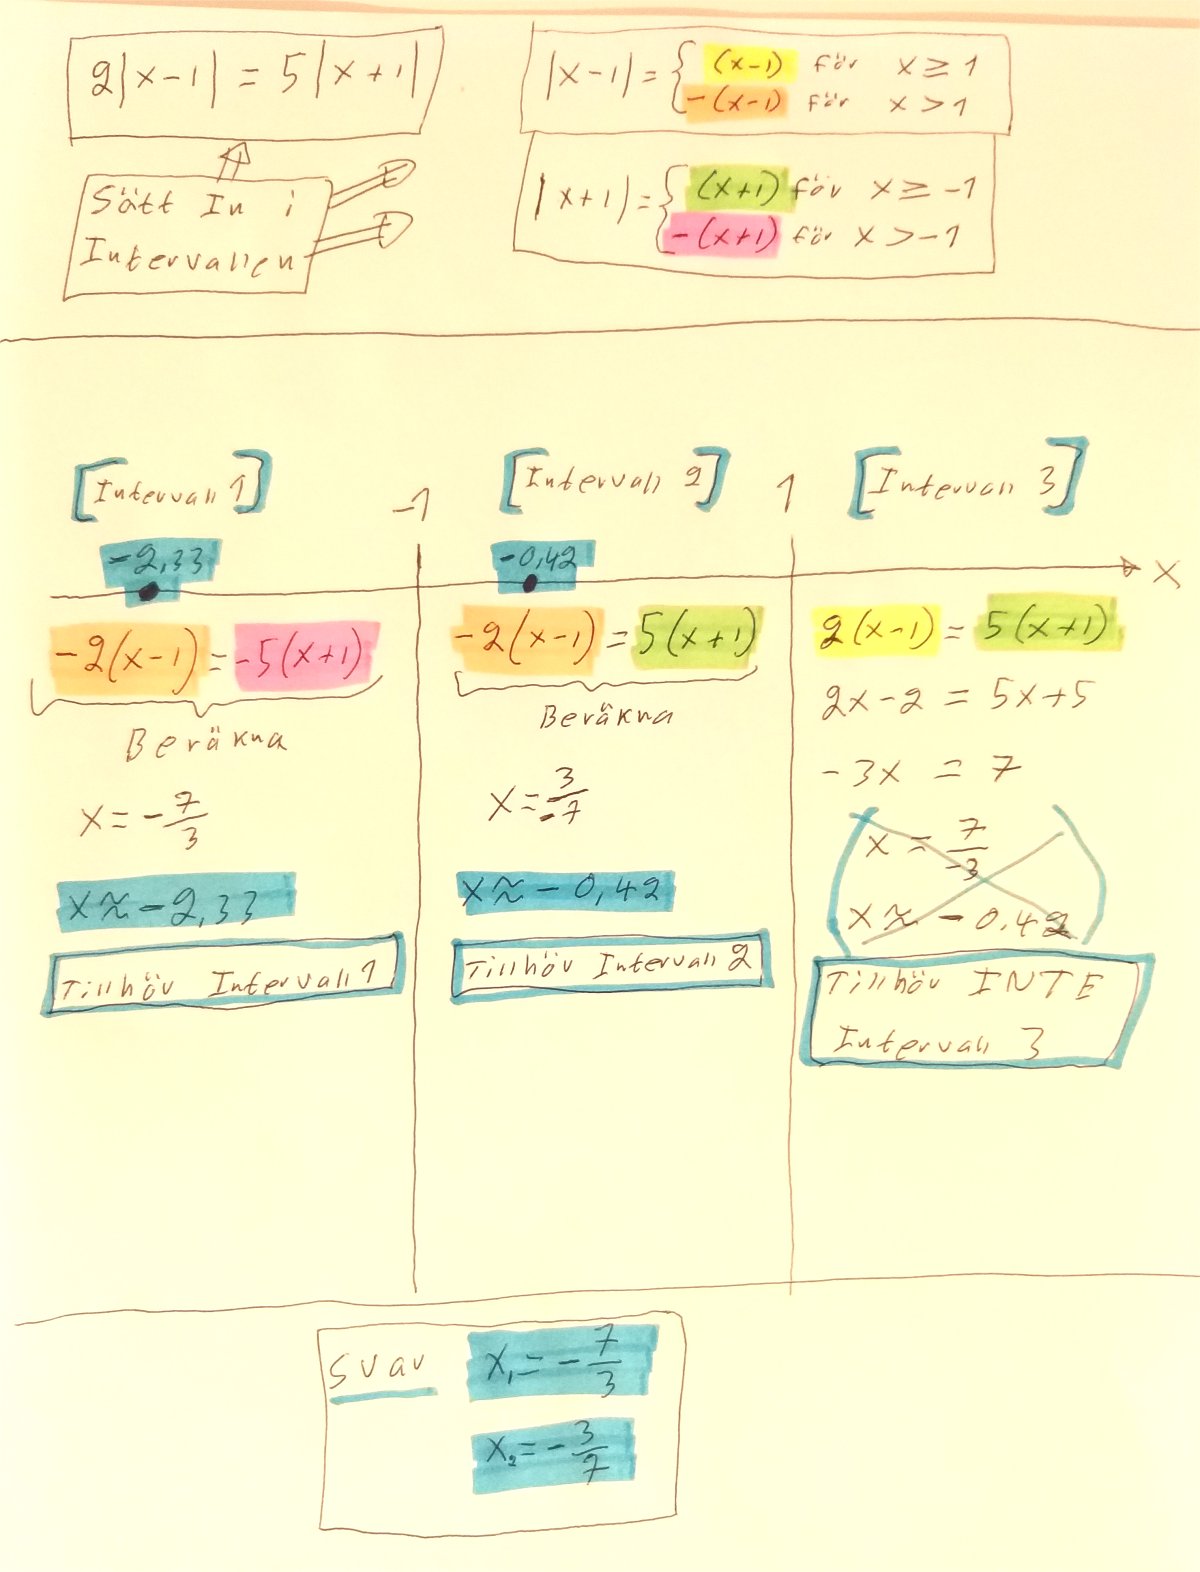 2|x-1| = 5|x+1|
|x-1| = { (x-1) för x ≥ 1
-(x-1) för x > 1
Sätt In i
Intervallen
|x+1| = { (x+1) för x ≥ -1
-(x+1) för x > -1
[Intervall 1]
-1
[Intervall 2]
1
[Intervall 3]
-2,33
-0,42
x
-2(x-1) = -5(x+1)
Beräkna
x = -7/3
x ≈ -2,33
Tillhör Intervall 1
-2(x-1) = 5(x+1)
Beräkna
x = 3/-7
x ≈ -0,42
Tillhör Intervall 2
2(x-1) = 5(x+1)
2x-2 = 5x+5
-3x = 7
x = 7/-3
x ≈ -0.42
Tillhör INTE
Intervall 3
Svar x₁ = -7/3
x₂ = -3/7